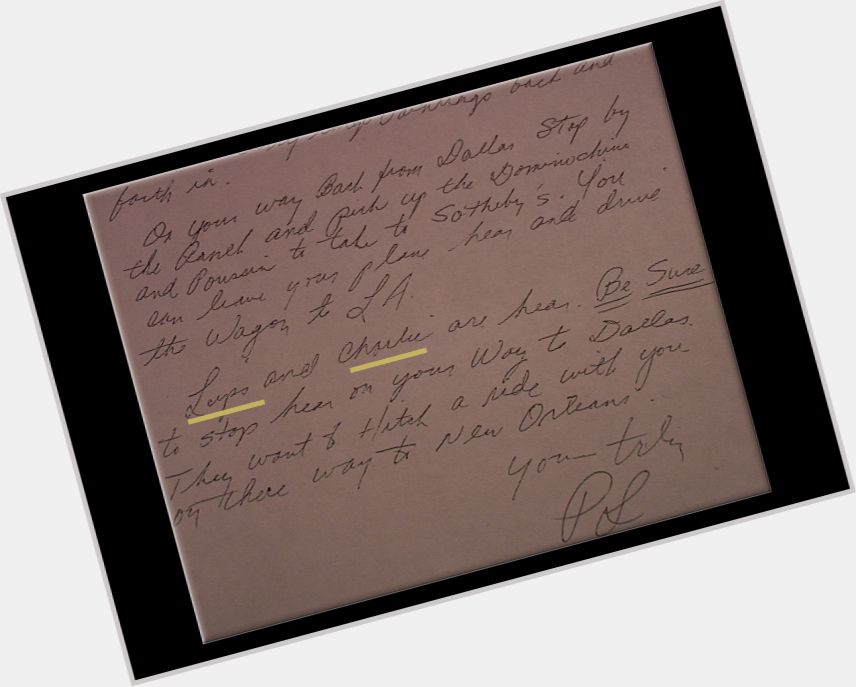 back and
forth in.
On your way Back from Dallas Stop by
the Ranch and Pick up the Dominichini
and Poussin to take to Sotheby's. You
can leave your plane hear and drive
the Wagon to LA.
Lupo and Charlie are hear. Be Sure
to stop hear on your Way to Dallas.
They want to Hitch a ride with you
on there way to New Orleans.
Your truly